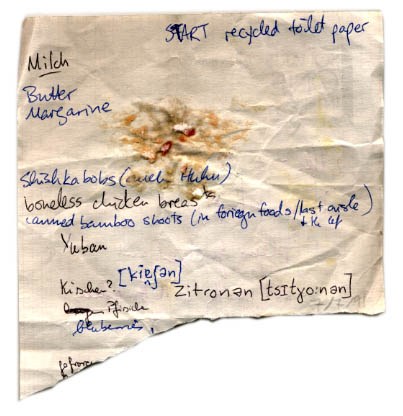 START recycled toilet paper
Milch
Butter
Margarine
Shishkabobs (auch Huhn)
boneless chicken breasts
canned bamboo shoots (in foreign foods/last aisle)
Yuban
Kischen? [kiɐ̯ʃən]
Zitronən [tsɪtʁo:nən]
Pfirsiche
blueberries,